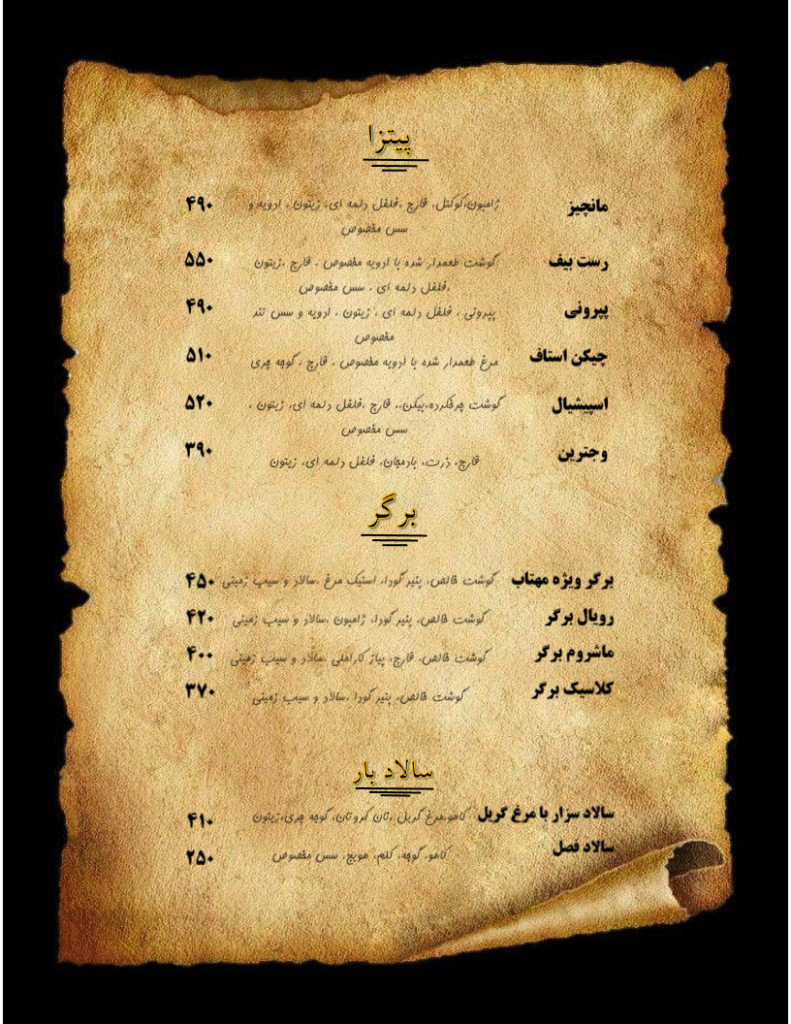 پیتزا
مانچیز ژامبون،کوکتل، قارچ ،فلفل دلمه ای، زیتون ، ادویه و ۴۹۰
سس مخصوص
رست بیف گوشت طعمدار شده با ادویه مخصوص ، قارچ ،زیتون ۵۵۰
،فلفل دلمه ای ، سس مخصوص
پپرونی پپرونی ، فلفل دلمه ای ، زیتون ، ادویه و سس تند ۴۹۰
مخصوص
چیکن استاف مرغ طعمدار شده با ادویه مخصوص ، قارچ ، گوجه چری ۵۱۰
اسپیشیال گوشت چرخکرده،بیکن،، قارچ ،فلفل دلمه ای، زیتون ، ۵۲۰
سس مخصوص
وجترین قارچ، ذرت، بادمجان، فلفل دلمه ای، زیتون ۳۹۰
برگر
برگر ویژه مهتاب گوشت خالص، پنیر گودا، استیک مرغ ،سالاد و سیب زمینی ۴۵۰
رویال برگر گوشت خالص، پنیر گودا، ژامبون ،سالاد و سیب زمینی ۴۲۰
ماشروم برگر گوشت خالص، قارچ، پیاز کاراملی ،سالاد و سیب زمینی ۴۰۰
کلاسیک برگر گوشت خالص، پنیر گودا ،سالاد و سیب زمینی ۳۷۰
سالاد بار
سالاد سزار با مرغ گریل کاهو،مرغ گریل ،نان کروتان، گوجه چری،زیتون ۴۱۰
سالاد فصل کاهو، گوجه، کلم، هویج، سس مخصوص ۲۵۰